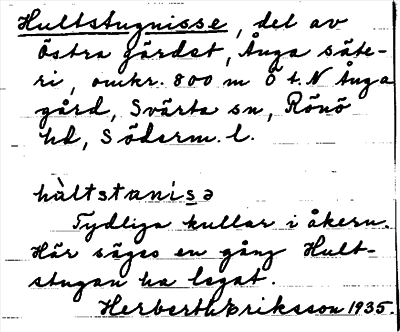 Hultstugnisse, del av
Östra gärdet, Ånga säte-
ri, omkr. 800 m Ö t. N Ånga
gård, Svärta sn, Rönö
hd, Söderm. l.
hùltstanisə
Tydliga kullar i åkern.
Här säges en gång Hult-
stugan ha legat.
Herberth Eriksson 1935.